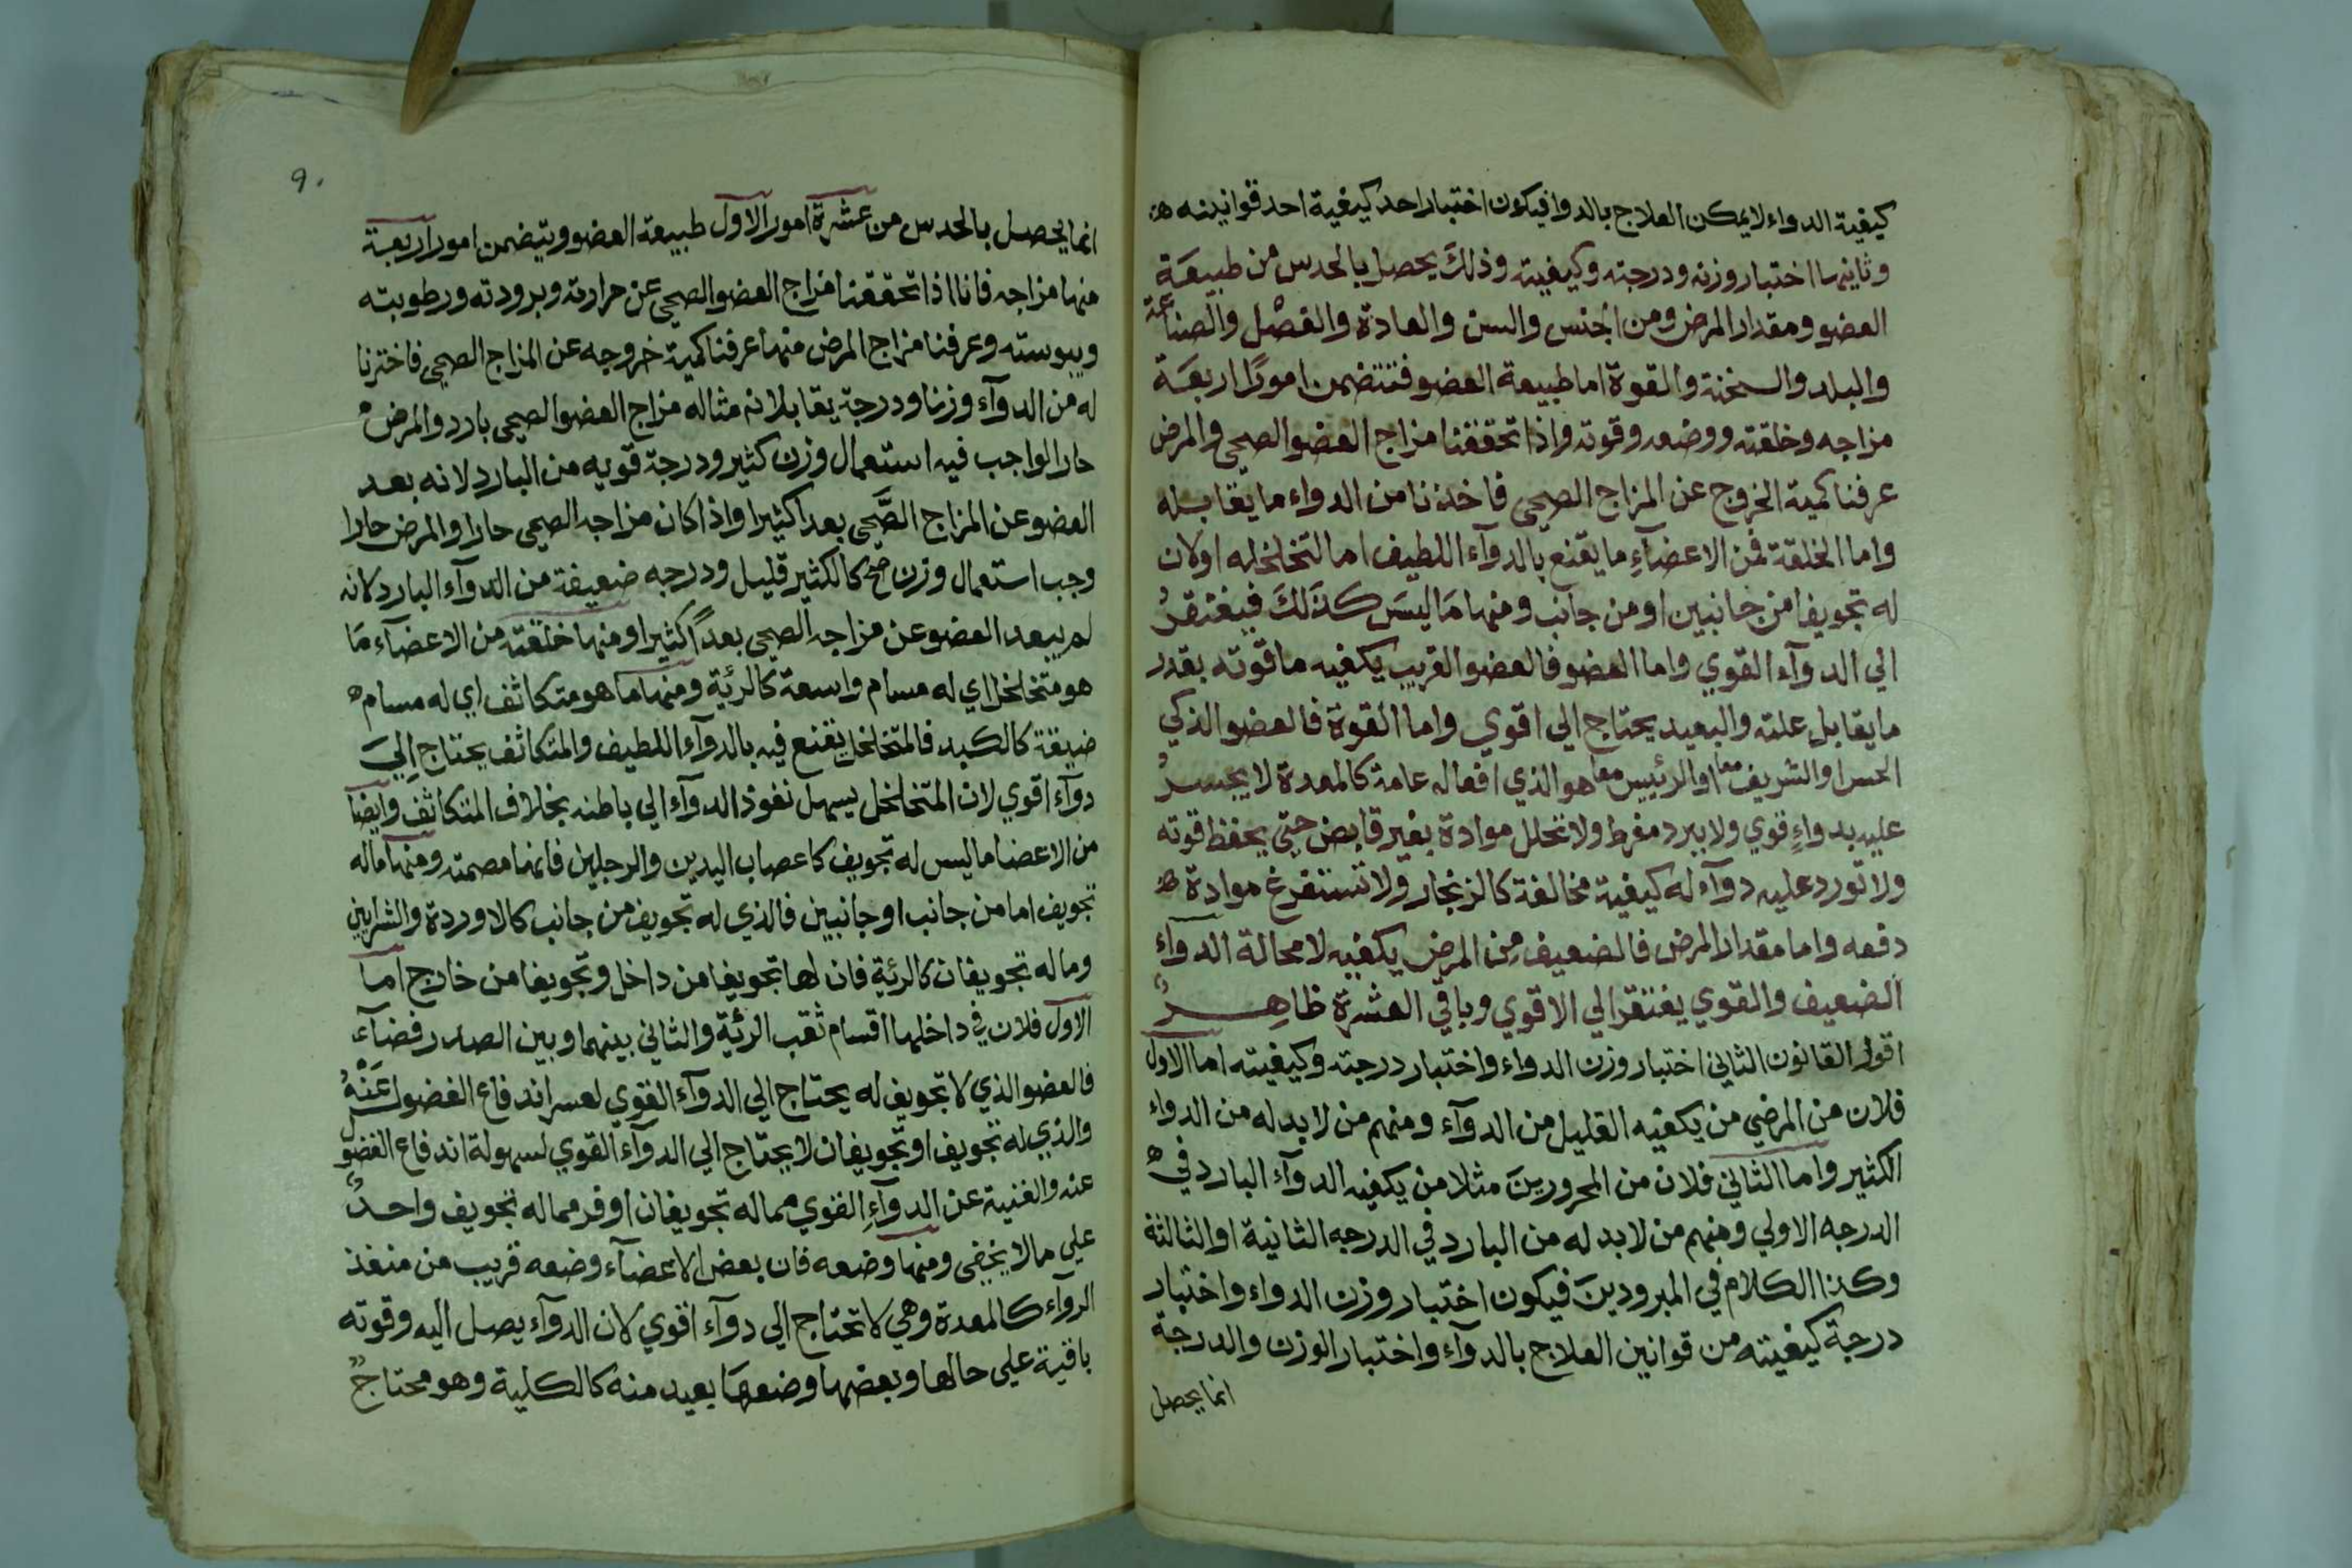 كيفية الدواء لا يمكن العلاج بالدوا فيكون اختبار احد كيفية احد قوانينه
وثانيها اختبار وزنه ودرجته وكيفيته وذلك يحصل بالحدس من طبيعة
العضو ومقدار المرض ومن الجنس والسن والعادة والفصل والصناعة
والبلد والسخنة والقوة اما طبيعة العضو فتتضمن امورا اربعة
مزاجه وخلقته ووضعه وقوته واذا تحققنا مزاج العضو الصحي والمرض
عرفنا كمية الخروج عن المزاج الصحي فاخذنا من الدواء ما يقابله
واما الخلقة فمن الاعضآءِ ما يقنع بالدوآء اللطيف اما لتخلخله او لان
له تجويفا من جانبين او من جانب ومنها مَا ليسَ كذَلكَ فيفتقرُ
الي الدوآء القوي واما العضو فالعضو القريب يكفيه ما قوته بقدر
ما يقابل علته والبعيد يحتاج الي اقوي واما القوة فالعضو الذكي
الحس او الشريف معا او الرئيس معا هو الذي افعاله عامة كالمعدة لا يجسرُ
عليه بدواءٍ قوي ولا يبرد مفرط ولا تحلل موادة بغير قابض حتي يحفظ قوته
ولا تورد عليه دوآء له كيفية مخالفة كالزنجار ولا تستفرغ موادة
دفعه واما مقدار المرض فالضعيف من المرض يكفيه لا محالة الدوآء
الضعيف والقوي يفتقر الي الاقوي وباقي العشرة ظاهرٌ
اقول القانون الثاني اختبار وزن الدواء واختبار درجته وكيفيته اما الاول
فلان من المرضي من يكفيه القليل من الدوآء ومنهم من لا بد له من الدواء
الكثير واما الثاني فلان من المحرورينَ مثلا من يكفيه الدوآء البارد في
الدرجه الاولي ومنهم من لا بد له من البارد في الدرجه الثانية او الثالثة
وكذا الكلام في المبرودينَ فيكون اختبار وزن الدواء واختبار
درجة كيفيته من قوانين العلاج بالدوآء واختبار الوزن والدرجة
انما يحصل
٩٠
انما يحصل بالحدس من عشرة امور الاول طبيعة العضو ويتضمن امورا اربعة
منها مزاجه فانا اذا تحققنا مزاج العضو الصحي عن حرارته وبرودته ورطوبته
ويبوسته وعرفنا مزاج المرض منها عرفنا كمية خروجه عن المزاج الصحي فاخترنا
له من الدوآء وزنا ودرجة يقابلانه مثاله مزاج العضو الصحي بارد والمرض
حار الواجب فيه استعمال وزن كثير ودرجة قويه من البارد لانه بعد
العضو عن المزاج الصَّحي بعدا كثيرا واذا كان مزاجه الصحي حارا والمرض حارا
وجب استعمال وزن كالكثير قليل ودرجه ضعيفة من الدوآء البارد لانه
لم يبعد العضو عن مزاجه الصحي بعداً كثيرا ومنها خلقته من الاعضآء مَا
هو متخلخل اي له مسام واسعة كالرئية ومنها ما هو متكاثف اي له مسام
ضيقة كالكبد فالمتخلخل يقنع فيه بالدوآء اللطيف والمتكاثف يحتاج اليَ
دوآء اقوي لان المتخلخل يسهل نفوذ الدوآء الي باطنه بخلاف المتكاثف وايضا
من الاعضا ما ليس له تجويف كاعصاب اليدين والرجلين فانها مصمته ومنها ما له
تجويف اما من جانب او جانبين فالذي له تجويف من جانب كالاوردة والشرايين
وما له تجويفان كالرئية فان لها تجويفا من داخل وتجويفا من خارج اما
الاول فلان في داخلها اقسام ثقب الرئية والثاني بينهما وبين الصدر فضآء
فالعضو الذي لا تجويف له يحتاج الي الدوآء القوي لعسر اندفاع الفضول عَنْهُ
والذي له تجويف او تجويفان لا يحتاج الي الدوآء القوي لسهولة اندفاع الفضول
عنه والغنية عن الدوآءِ القوي مما له تجويفان اوفر مما له تجويف واحدٌ
علي ما لا يخفي ومنها وضعه فان بعض الاعضآء وضعه قريب من منفذ
الدوآء كالمعدة وهي لا تحتاج الي دوآء اقوي لان الدوآء يصل اليه وقوته
باقية علي حالها وبعضها وضعهَا بعيد منه كالكلية وهو محتاجٌ